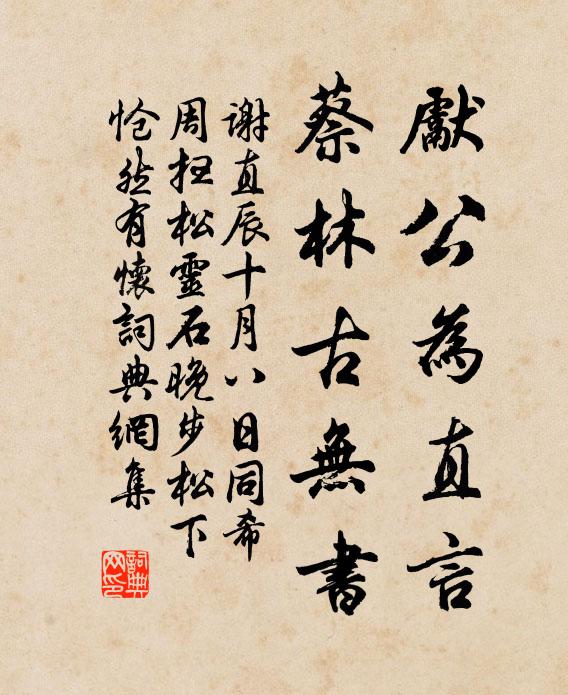 獻公為直言
蔡林古無書
謝直辰十月八日同希
周抂松靈石晚步松下
怆然有懷詞典網集
詞典網印